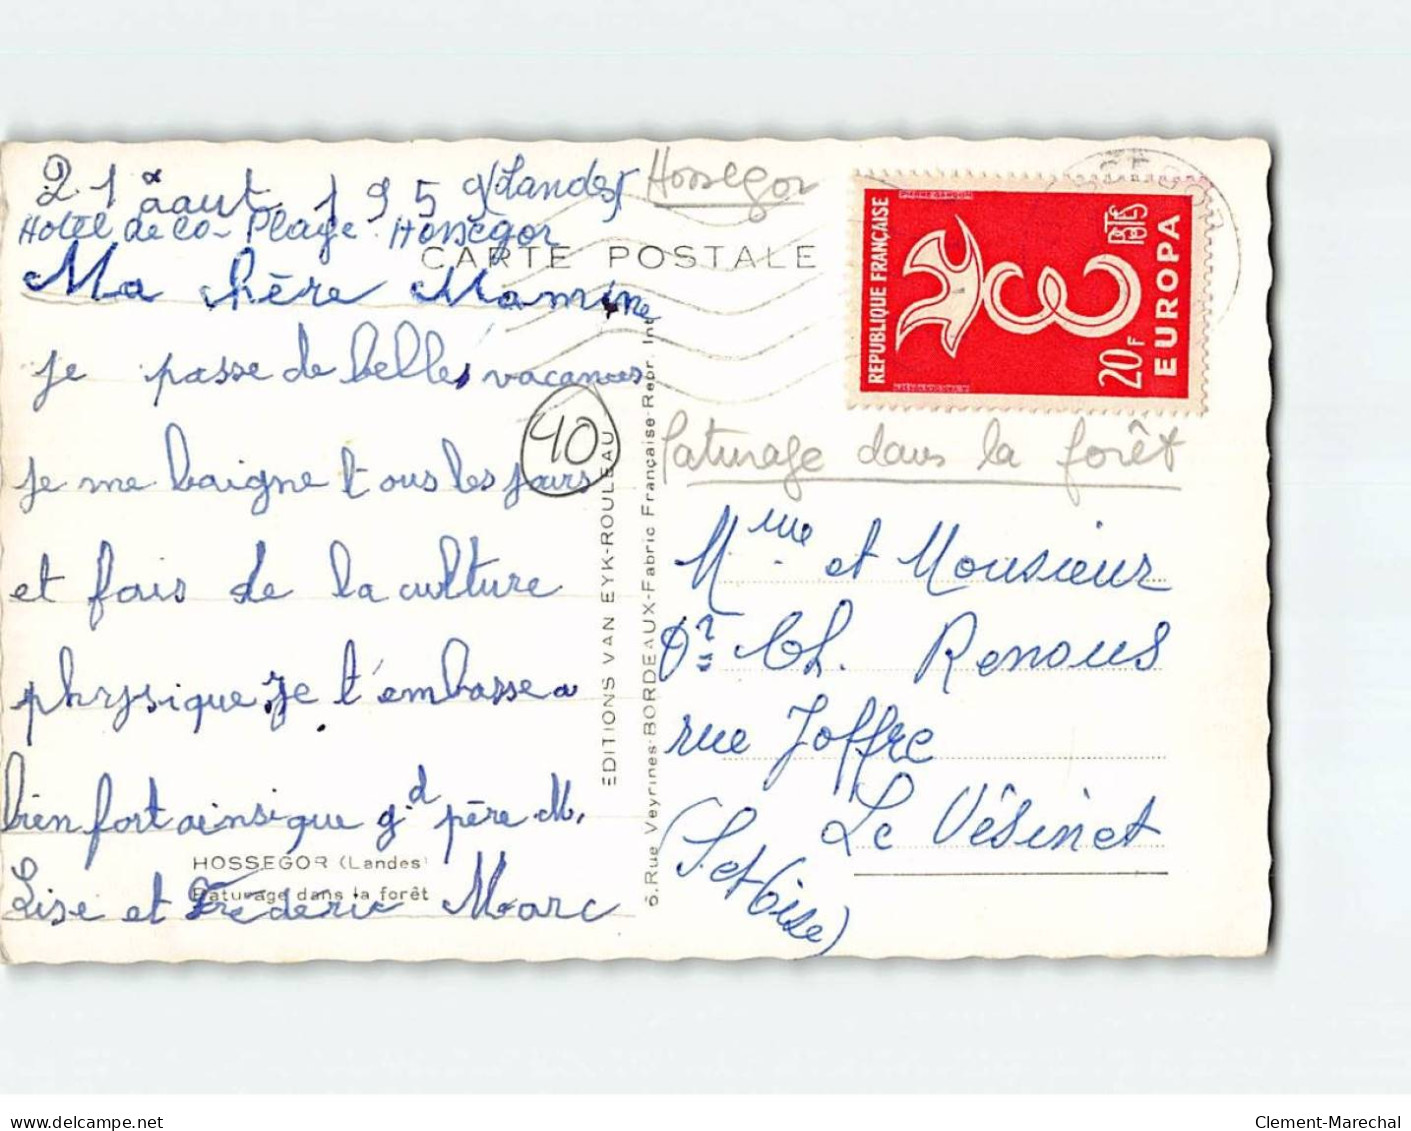 21 aaut 1959 (Landes)
Hotel de Co- Plage Hossegor
Ma chère Mamine
je passe de belles vacances
je me baigne tous les jours
et fais de la culture
physique, je t'embasse a
bien fort ainsi que gd père M.
Lise et Fréderic Marc
40
HOSSEGOR (Landes)
Paturage dans la forêt
CARTE POSTALE
EDITIONS VAN EYK-ROULEAU
6, Rue Veyrines-BORDEAUX-Fabric Française-Repr. Int
Hossegor
REPUBLIQUE FRANÇAISE
20F
EUROPA
POSTES
Paturage dans la forêt
Mme et Monsieur
Ch. Renous
rue Joffre
Le Vésinet
(S. et Oise)
delcampe.net
Clement-Marechal